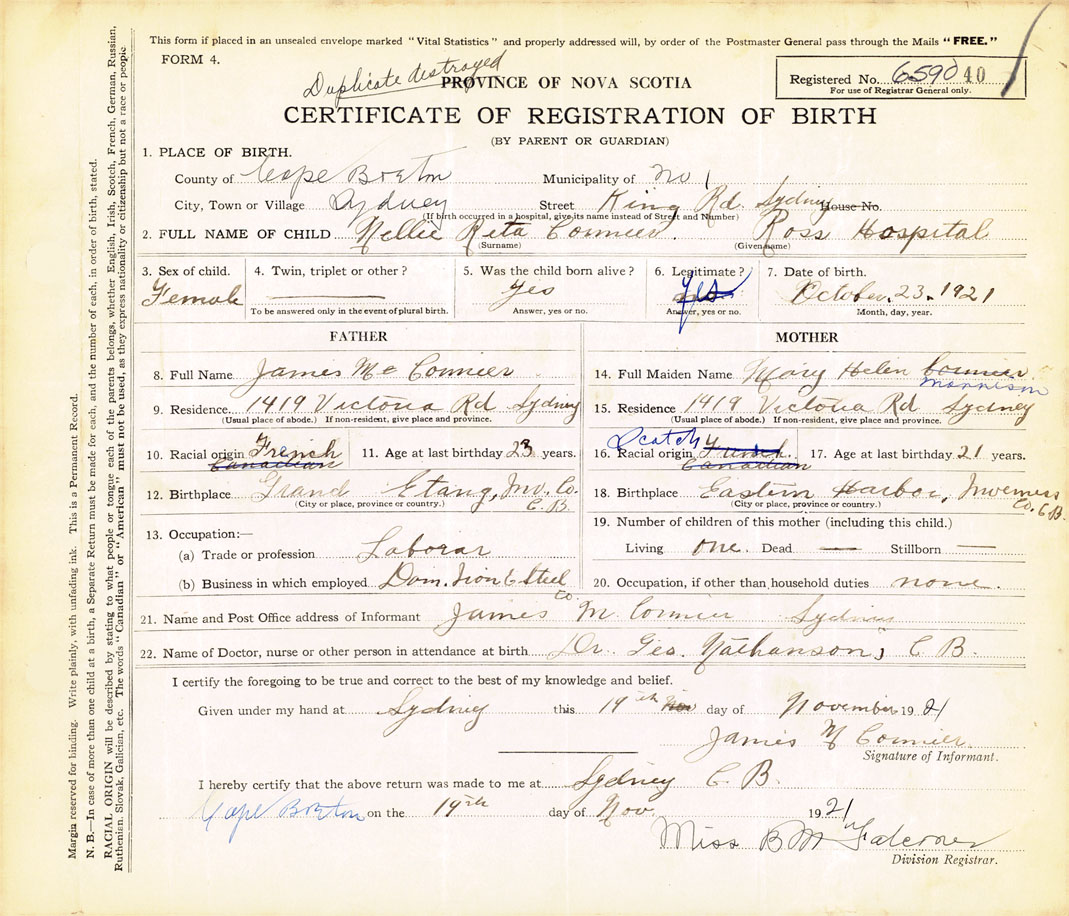 This form if placed in an unsealed envelope marked "Vital Statistics" and properly addressed will, by order of the Postmaster General pass through the Mails "FREE."
FORM 4.
Duplicate destroyed
PROVINCE OF NOVA SCOTIA
Registered No. 6590 40
For use of Registrar General only.
CERTIFICATE OF REGISTRATION OF BIRTH
(BY PARENT OR GUARDIAN)
1. PLACE OF BIRTH.
County of Cape Breton Municipality of No 1
City, Town or Village Sydney Street King Rd. Sydney House No.
(If birth occurred in a hospital, give its name instead of Street and Number)
2. FULL NAME OF CHILD Nellie Reta Cormier. Ross Hospital
(Surname) (Given name)
3. Sex of child. 4. Twin, triplet or other? 5. Was the child born alive? 6. Legitimate? 7. Date of birth.
Female — Yes Yes October. 23. 1921
To be answered only in the event of plural birth. Answer, yes or no. Answer, yes or no. Month, day, year.
FATHER
8. Full Name James Mc Cormier
9. Residence. 1419 Victoria Rd Sydney
(Usual place of abode.) If non-resident, give place and province.
10. Racial origin French Canadian 11. Age at last birthday 23 years.
12. Birthplace Grand Etang, Inv. Co. C. B.
(City or place, province or country.)
13. Occupation:—
(a) Trade or profession Laborar
(b) Business in which employed Dom. Iron & Steel Co
MOTHER
14. Full Maiden Name Mary Helen Cormier Morrison
15. Residence 1419 Victoria Rd Sydney
(Usual place of abode.) If non-resident, give place and province.
Scotch
16. Racial origin French. Canadian 17. Age at last birthday 21 years.
18. Birthplace Eastern Harbor, Inverness Co. C. B.
(City or place, province or country.)
19. Number of children of this mother (including this child.)
Living one. Dead — Stillborn —
20. Occupation, if other than household duties none.
21. Name and Post Office address of Informant James M Cormier Sydney
22. Name of Doctor, nurse or other person in attendance at birth Dr. Geo. Nathanson, C B.
I certify the foregoing to be true and correct to the best of my knowledge and belief.
Given under my hand at Sydney this 19th Nov day of November 1921
James M Cormier
Signature of Informant.
I hereby certify that the above return was made to me at Sydney C. B.
Cape Breton on the 19th day of Nov. 1921
Miss B M Falconer
Division Registrar.
Margin reserved for binding. Write plainly, with unfading ink. This is a Permanent Record.
N. B.—In case of more than one child at a birth, a Separate Return must be made for each, and the number of each, in order of birth, stated.
RACIAL ORIGIN will be described by stating to what people or tongue each of the parents belongs, whether English, Irish, Scotch, French, German, Russian,
Ruthenian, Slovak, Galician, etc. The words "Canadian" or "American" must not be used, as they express nationality or citizenship but not a race or people